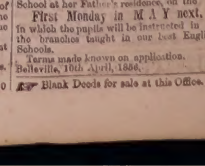 School at her Father's residence, on the
First Monday in MAY next,
in which the pupils will be instructed in
the branches taught in our best Engli
Schools.
Terms made known on application.
Belleville, 18th April, 1856.
Blank Deeds for sale at this Office.